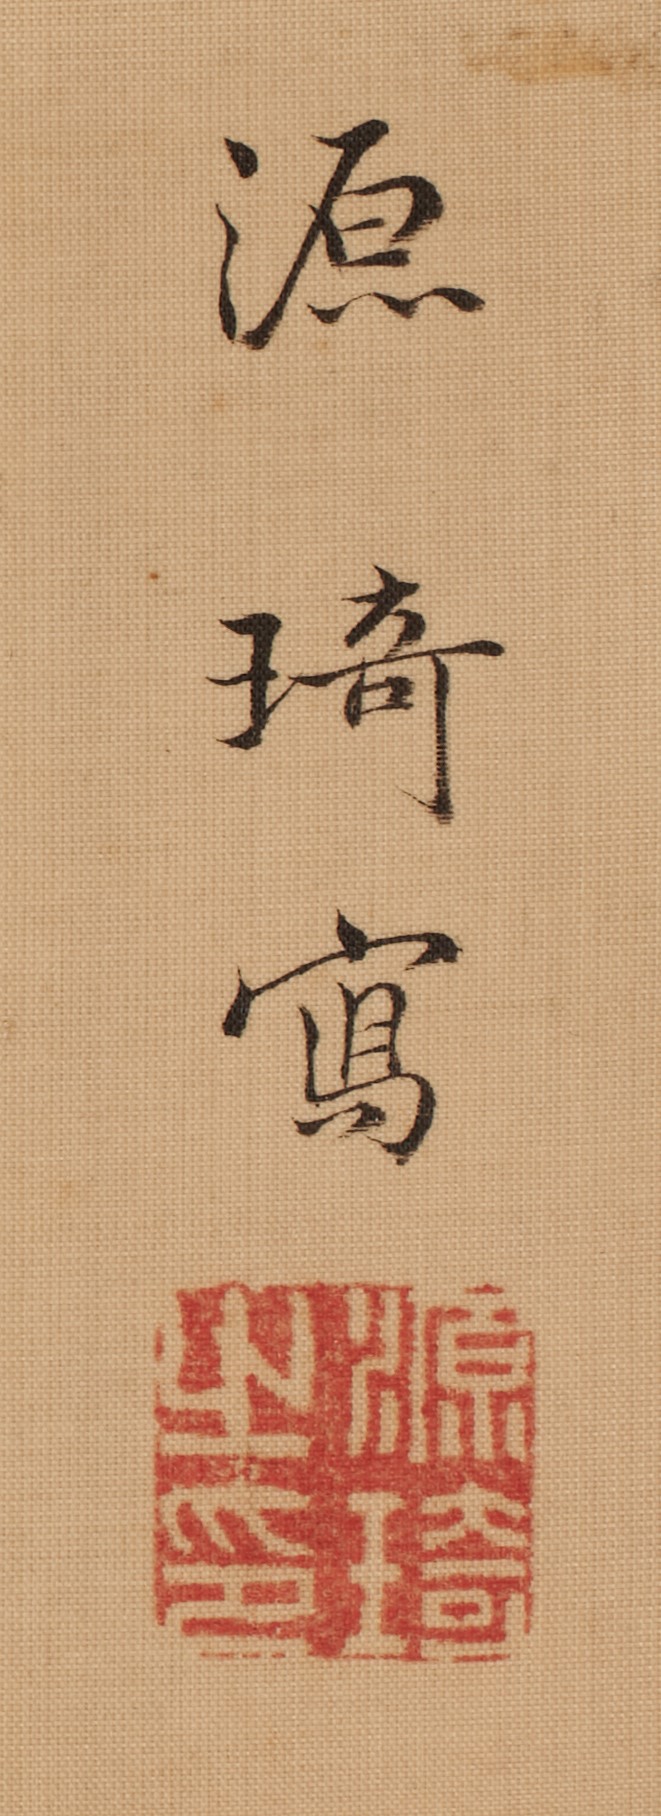 源琦寫
源琦
之印